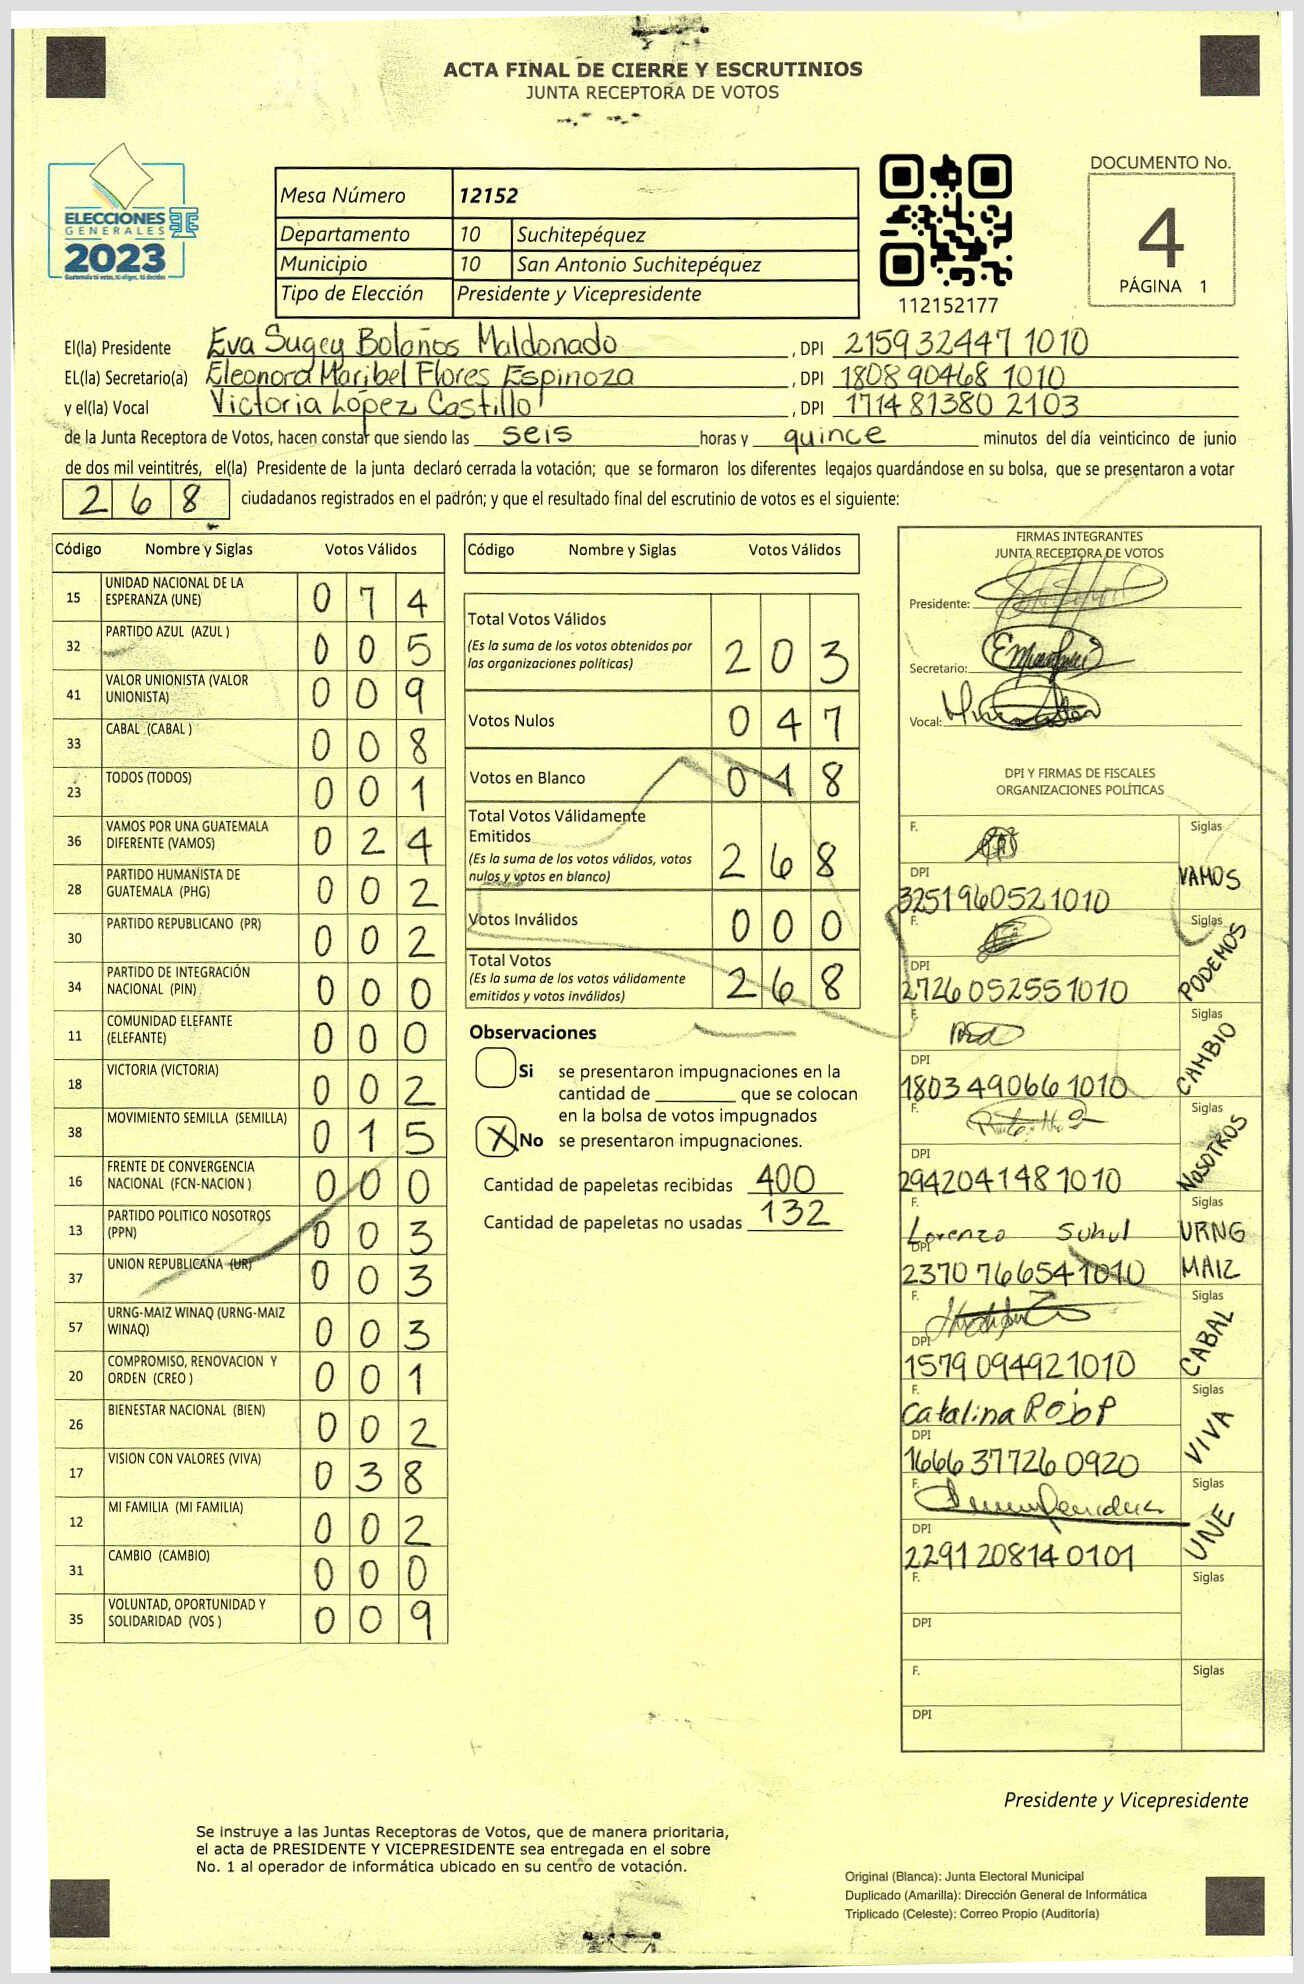 ACTA FINAL DE CIERRE Y ESCRUTINIOS
JUNTA RECEPTORA DE VOTOS
ELECCIONES
GENERALES
2023
Mesa Número 12152
Departamento 10 Suchitepéquez
Municipio 10 San Antonio Suchitepéquez
Tipo de Elección Presidente y Vicepresidente
112152177
DOCUMENTO No.
4
PÁGINA 1
El(la) Presidente Eva Sugey Bolaños Maldonado , DPI 2159 32447 1010
EL(la) Secretario(a) Eleonora Maribel Flores Espinoza , DPI 1808 90468 1010
y el(la) Vocal Victoria López Castillo , DPI 1714 81380 2103
de la Junta Receptora de Votos, hacen constar que siendo las seis horas y quince minutos del día veinticinco de junio
de dos mil veintitrés, el(la) Presidente de la junta declaró cerrada la votación; que se formaron los diferentes legajos guardándose en su bolsa, que se presentaron a votar
268 ciudadanos registrados en el padrón; y que el resultado final del escrutinio de votos es el siguiente:
Código Nombre y Siglas Votos Válidos
15 UNIDAD NACIONAL DE LA ESPERANZA (UNE) 074
32 PARTIDO AZUL (AZUL ) 005
41 VALOR UNIONISTA (VALOR UNIONISTA) 009
33 CABAL (CABAL ) 008
23 TODOS (TODOS) 001
36 VAMOS POR UNA GUATEMALA DIFERENTE (VAMOS) 024
28 PARTIDO HUMANISTA DE GUATEMALA (PHG) 002
30 PARTIDO REPUBLICANO (PR) 002
34 PARTIDO DE INTEGRACIÓN NACIONAL (PIN) 000
11 COMUNIDAD ELEFANTE (ELEFANTE) 000
18 VICTORIA (VICTORIA) 002
38 MOVIMIENTO SEMILLA (SEMILLA) 015
16 FRENTE DE CONVERGENCIA NACIONAL (FCN-NACION ) 000
13 PARTIDO POLITICO NOSOTROS (PPN) 003
37 UNION REPUBLICANA (UR) 003
57 URNG-MAIZ WINAQ (URNG-MAIZ WINAQ) 003
20 COMPROMISO, RENOVACION Y ORDEN (CREO ) 001
26 BIENESTAR NACIONAL (BIEN) 002
17 VISION CON VALORES (VIVA) 038
12 MI FAMILIA (MI FAMILIA) 002
31 CAMBIO (CAMBIO) 000
35 VOLUNTAD, OPORTUNIDAD Y SOLIDARIDAD (VOS ) 009
Código Nombre y Siglas Votos Válidos
Total Votos Válidos 203
(Es la suma de los votos obtenidos por
las organizaciones políticas)
Votos Nulos 047
Votos en Blanco 018
Total Votos Válidamente
Emitidos 268
(Es la suma de los votos válidos, votos
nulos y votos en blanco)
Votos Inválidos 000
Total Votos 268
(Es la suma de los votos válidamente
emitidos y votos inválidos)
Observaciones
Si se presentaron impugnaciones en la
cantidad de ________ que se colocan
en la bolsa de votos impugnados
X No se presentaron impugnaciones.
Cantidad de papeletas recibidas 400
Cantidad de papeletas no usadas 132
FIRMAS INTEGRANTES
JUNTA RECEPTORA DE VOTOS
Presidente:
Secretario:
Vocal:
DPI Y FIRMAS DE FISCALES
ORGANIZACIONES POLÍTICAS
F. Siglas
DPI VAMOS
3251960521010
F. Siglas
DPI PODEMOS
2726052551010
F. Siglas
DPI CAMBIO
1803490661010
F. Siglas
DPI NOSOTROS
2942041481010
F. Siglas
Lorenzo Suhul URNG
DPI MAIZ
2370766541010
F. Siglas
DPI CABAL
1579094921010
F. Siglas
Catalina
DPI VIVA
1666377260920
F. Siglas
DPI UNE
2291208140101
F. Siglas
DPI
F. Siglas
DPI
Presidente y Vicepresidente
Se instruye a las Juntas Receptoras de Votos, que de manera prioritaria,
el acta de PRESIDENTE Y VICEPRESIDENTE sea entregada en el sobre
No. 1 al operador de informática ubicado en su centro de votación.
Original (Blanca): Junta Electoral Municipal
Duplicado (Amarilla): Dirección General de Informática
Triplicado (Celeste): Correo Propio (Auditoría)